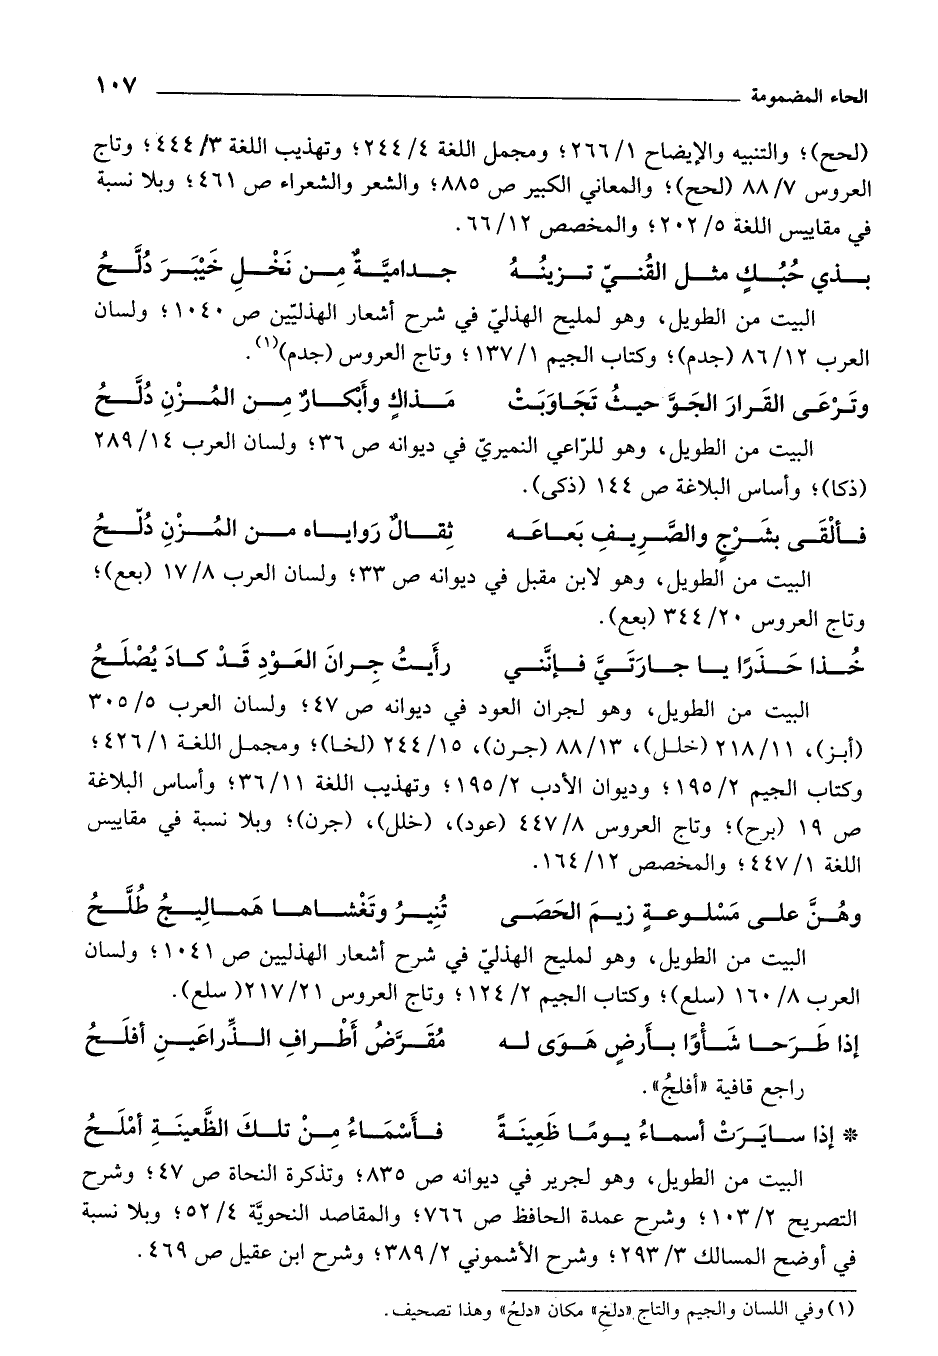 الحاء المضمومة ١٠٧
(لحح)؛ والتنبيه والإيضاح ١/ ٢٦٦؛ ومجمل اللغة ٤/ ٢٤٤؛ وتهذيب اللغة ٣/ ٤٤٤؛ وتاج
العروس ٧/ ٨٨ (لحح)؛ والمعاني الكبير ص ٨٨٥؛ والشعر والشعراء ص ٤٦١؛ وبلا نسبة
في مقاييس اللغة ٥/ ٢٠٢؛ والمخصص ١٢/ ٦٦.
بـذي حُبُـكٍ مثـل القُنـيّ تـزينُـهُ جـداميَّـةٌ مـن نَخْـلِ خَيْبَـرَ دُلَّـحُ
البيت من الطويل، وهو لمليح الهذليّ في شرح أشعار الهذليّين ص ١٠٤٠؛ ولسان
العرب ١٢/ ٨٦ (جدم)؛ وكتاب الجيم ١/ ١٣٧؛ وتاج العروس (جدم)(١).
وتَـرْعَـى القَـرارَ الجَـوَّ حيـثُ تَجَـاوَبَـتْ مَـذاكٍ وأَبْكـارٌ مـن المُـزْنِ دُلَّـحُ
البيت من الطويل، وهو للرّاعي النميريّ في ديوانه ص ٣٦؛ ولسان العرب ١٤/ ٢٨٩
(ذكا)؛ وأساس البلاغة ص ١٤٤ (ذكى).
فـألْقَـى بشَـرْجٍ والصَّـريـفِ بَعـاعَـه ثِقـالٌ رَوايـاه مـن المُـزْنِ دُلّـحُ
البيت من الطويل، وهو لابن مقبل في ديوانه ص ٣٣؛ ولسان العرب ٨/ ١٧ (بعع)؛
وتاج العروس ٢٠/ ٣٤٤ (بعع).
خُـذا حَـذَرًا يـا جـارَتَـيَّ فـإنَّنـي رأَيـتُ جِـرانَ العَـوْدِ قَـدْ كـادَ يُصْلَـحُ
البيت من الطويل، وهو لجران العود في ديوانه ص ٤٧؛ ولسان العرب ٥/ ٣٠٥
(أبـز)، ١١/ ٢١٨ (خلـل)، ١٣/ ٨٨ (جـرن)، ١٥/ ٢٤٤ (لخـا)؛ ومجمـل اللغـة ١/ ٤٢٦؛
وكتاب الجيم ٢/ ١٩٥؛ وديوان الأدب ٢/ ١٩٥؛ وتهذيب اللغة ١١/ ٣٦؛ وأساس البلاغة
ص ١٩ (برح)؛ وتاج العروس ٨/ ٤٤٧ (عود)، (خلل)، (جرن)؛ وبلا نسبة في مقاييس
اللغة ١/ ٤٤٧؛ والمخصص ١٢/ ١٦٤.
وهُـنَّ علـى مَسْلـوعـةٍ زيـمَ الحَصَـى تُنِيـرُ وتَغْشـاهـا هَمـالِيـجُ طُلَّـحُ
البيت من الطويل، وهو لمليح الهذليّ في شرح أشعار الهذليين ص ١٠٤١؛ ولسان
العرب ٨/ ١٦٠ (سلع)؛ وكتاب الجيم ٢/ ١٢٤؛ وتاج العروس ٢١/ ٢١٧( سلع).
إذا طَـرَحـا شَـأْوًا بـأَرضٍ هَـوَى لـه مُقَـرَّضُ أَطْـرافِ الـذِّراعَيـنِ أفلَـحُ
راجع قافية «أفلجُ».
* إذا سـايَـرَتْ أسمـاءُ يـومًـا ظَعِينَـةً فـأَسْمَـاءُ مِـنْ تلـكَ الظَّعينَـةِ أمْلَـحُ
البيت من الطويل، وهو لجرير في ديوانه ص ٨٣٥؛ وتذكرة النحاة ص ٤٧؛ وشرح
التصريح ٢/ ١٠٣؛ وشرح عمدة الحافظ ص ٧٦٦؛ والمقاصد النحويَّة ٤/ ٥٢؛ وبلا نسبة
في أوضح المسالك ٣/ ٢٩٣؛ وشرح الأشموني ٢/ ٣٨٩؛ وشرح ابن عقيل ص ٤٦٩.
(١) وفي اللسان والجيم والتاج «دلخ» مكان «دلحُ» وهذا تصحيف.